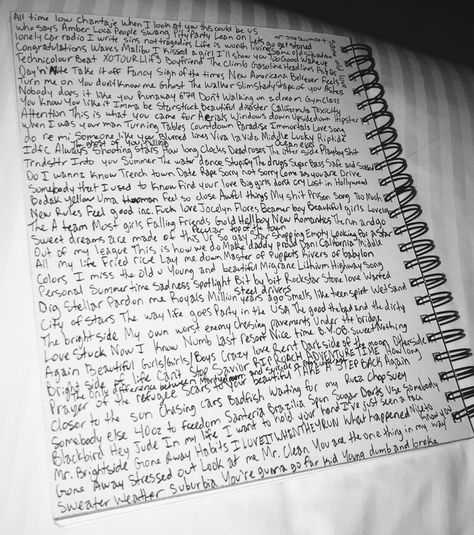 All time low Chantaje When I look at you this could be us
who says Amber Loca People Swang PityParty Lean on Lets go get stoned
lonely car radio I write sins not tragedies Life is worth living same old situation
Congratulations Waves Malibu I kissed a girl I'll show you Too Good Wake up
Technicolour Beat XOTOURLlif3 Boyfriend The Climb Gasoline Headlines
Day'n'Nite Take it off Fancy Sign of the times New Americana Believer Feels
Turn me on You don't know me Ghost The Walker Slim Shady Shape of you Ashes
Nobody does it like you hunaway 679 Don't Walking on a dream Gym Class
You Know You like it Imma be Starstruck Beautiful disaster California Toxicity
Attention This is what you came for Aerials Windows down Upsidedown Hipster
When I was your man Turning Tables Countdown Paradise Immortals Love song
do re mi Someone like you Blurred lines Viva la Vida Middle Lucky Riptide
the ghost of you Falling Ocean eyes
Idfc Always Shooting Stars Pov How long Clocks Dead roses The other side Playboy Shit
Trndsttr Into you Summer The water dance Stupify The drugs Sugar Bass Safe and Sound
Do I wanna Know Trench town Date Rape Sorry not Sorry Come as you are Drive
Somebody that I used to Know Find your love Big girls don't cry Lost in Hollywood
Bodak yellow Uma Feel so close Awful things My shit Prison Song Too Much
New Rules Feel good inc. Fuck love Jocelyn Flores Beamer boy Beautiful girls Lovely
The A team Most girls Falling Friends Gold Hellboy New Romantics Then run and go
Peculiar top of the town
Sweet dreams are made of this I'm so gay Star Shopping Empty Looking for a Star
Out of my league This is how we do Make daddy proud Dani California Middle
All my life Fried rice Lay me down Master of Puppets Rivers of babylon
Colors I miss the old u Young and beautiful Migraine Lithium Highway Song
Personal Summertime Sadness Spotlight Bit by bit Rockstar Stone love Wanted
Steel drivers
Dig Stellar Pardon me Royals Million years ago Smells like teen spirit Wet Sand
City of stars The way life goes Party in the USA The good the bad and the dirty
The bright side My own worst enemy Dressing pavements Under the bridge
Love Stuck Now I Know Numb Last Resort Nice time BYOB Sweet Nothing
Again Beautiful Girls/Girls/Boys Crazy love Reent Dark side of the moon Otherside
Bright side of Life Can't Stop Savior RIP ROACH ADVENTURE TIME How long
The only difference between Martyrdom and suicide is press coverage
Prayer of the refugee Scars to your beautiful A LITTLE STEP Back Again
Closer to the sun Chasing cars Badfish Waiting for my Ruca Chop suey
Somebody else 40oz to freedom Santeria Brazilia Spun Sugar Darts Use Somebody
Blackbird Hey Jude In my life I want to hold your hand I've just seen a face
Mr. Brightside Gone Away Habits I LOVE IT WHEN THEY RUN What happened Nice to know you
Gone Away Stressed Out Look at me Mr. Clean You are the one thing in my way
Sweater weather Suburbia You're gunna go far kid Young dumb and broke